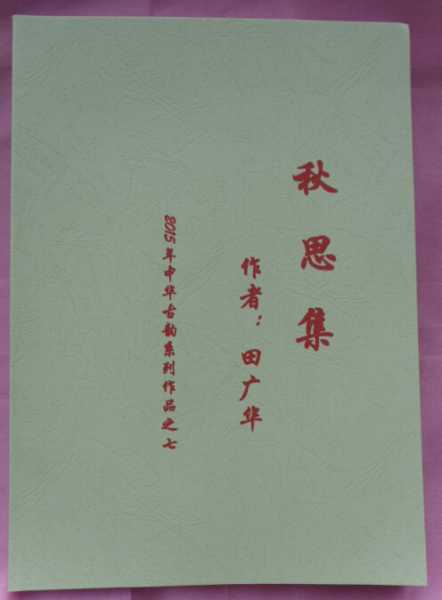 秋思集
作者：田广华
2015年中华古韵系列作品之七